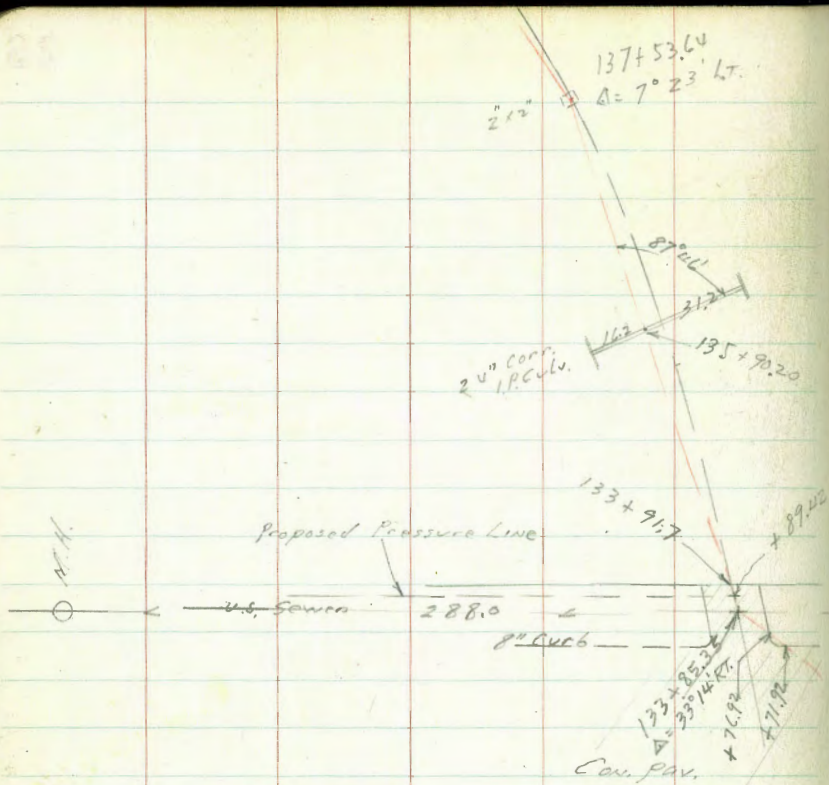 137+53.64
Δ= 7° 23' LT.
2"x2"
87°46'
31.2
16.2
135+90.20
24" Corr.
I.P. Culv.
133+91.7
+89.42
M.H.
Proposed Pressure Line
U.S. Sewer 288.0
8" Curb
133+85.35
Δ= 33°14' RT.
+76.92
+71.92
Con. Pav.